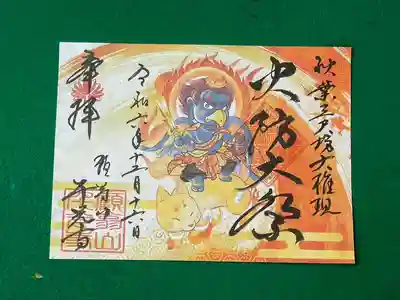 秋葉三尺坊大権現
火防大祭
令和六年十二月十六日
奉拝